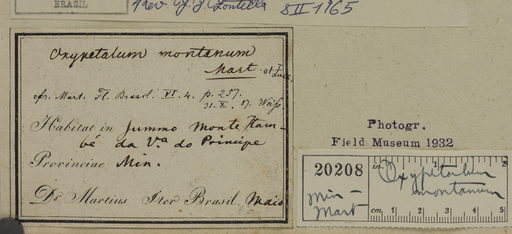 BRASIL
Rev. J. J. Fontella 8 II 1965
Oxypetalum montanum
Mart.
cfr. Mart. Fl. Brasil. VI. 4. p. 257.
31. X. 87.
Habitat in summo monte Itam-
bé da Va do Principe
Provinciae Min.
Dr. Martius Iter Brasil. Maio
Photogr.
Field Museum 1932
20208
Oxypetalum
montanum
Min-
Mart-
cm 1 2 3 4 5